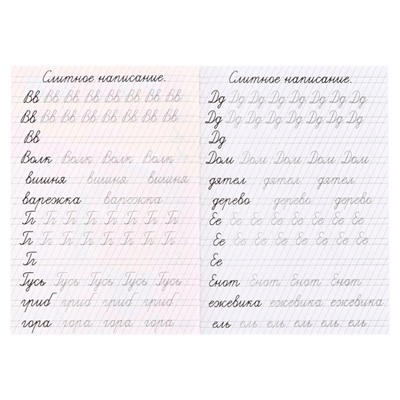 Слитное написание.
Вв Вв Вв Вв Вв Вв Вв Вв
Вв Вв Вв Вв Вв Вв Вв Вв
Вв
Волк Волк Волк Волк
вишня вишня вишня
варежка варежка
Гг Гг Гг Гг Гг Гг Гг
Гг Гг Гг Гг Гг Гг Гг
Гг
Гусь Гусь Гусь Гусь
гриб гриб гриб гриб
гора гора гора гора
Слитное написание.
Дд Дд Дд Дд Дд Дд Дд Дд
Дд Дд Дд Дд Дд Дд Дд Дд
Дд
Дом Дом Дом Дом Дом
дятел дятел дятел
дерево дерево дерево
Ее Ее Ее Ее Ее Ее Ее Ее
Ее Ее Ее Ее Ее Ее Ее Ее
Ее
Енот Енот Енот Енот
ежевика ежевика ежевика
ель ель ель ель ель ель